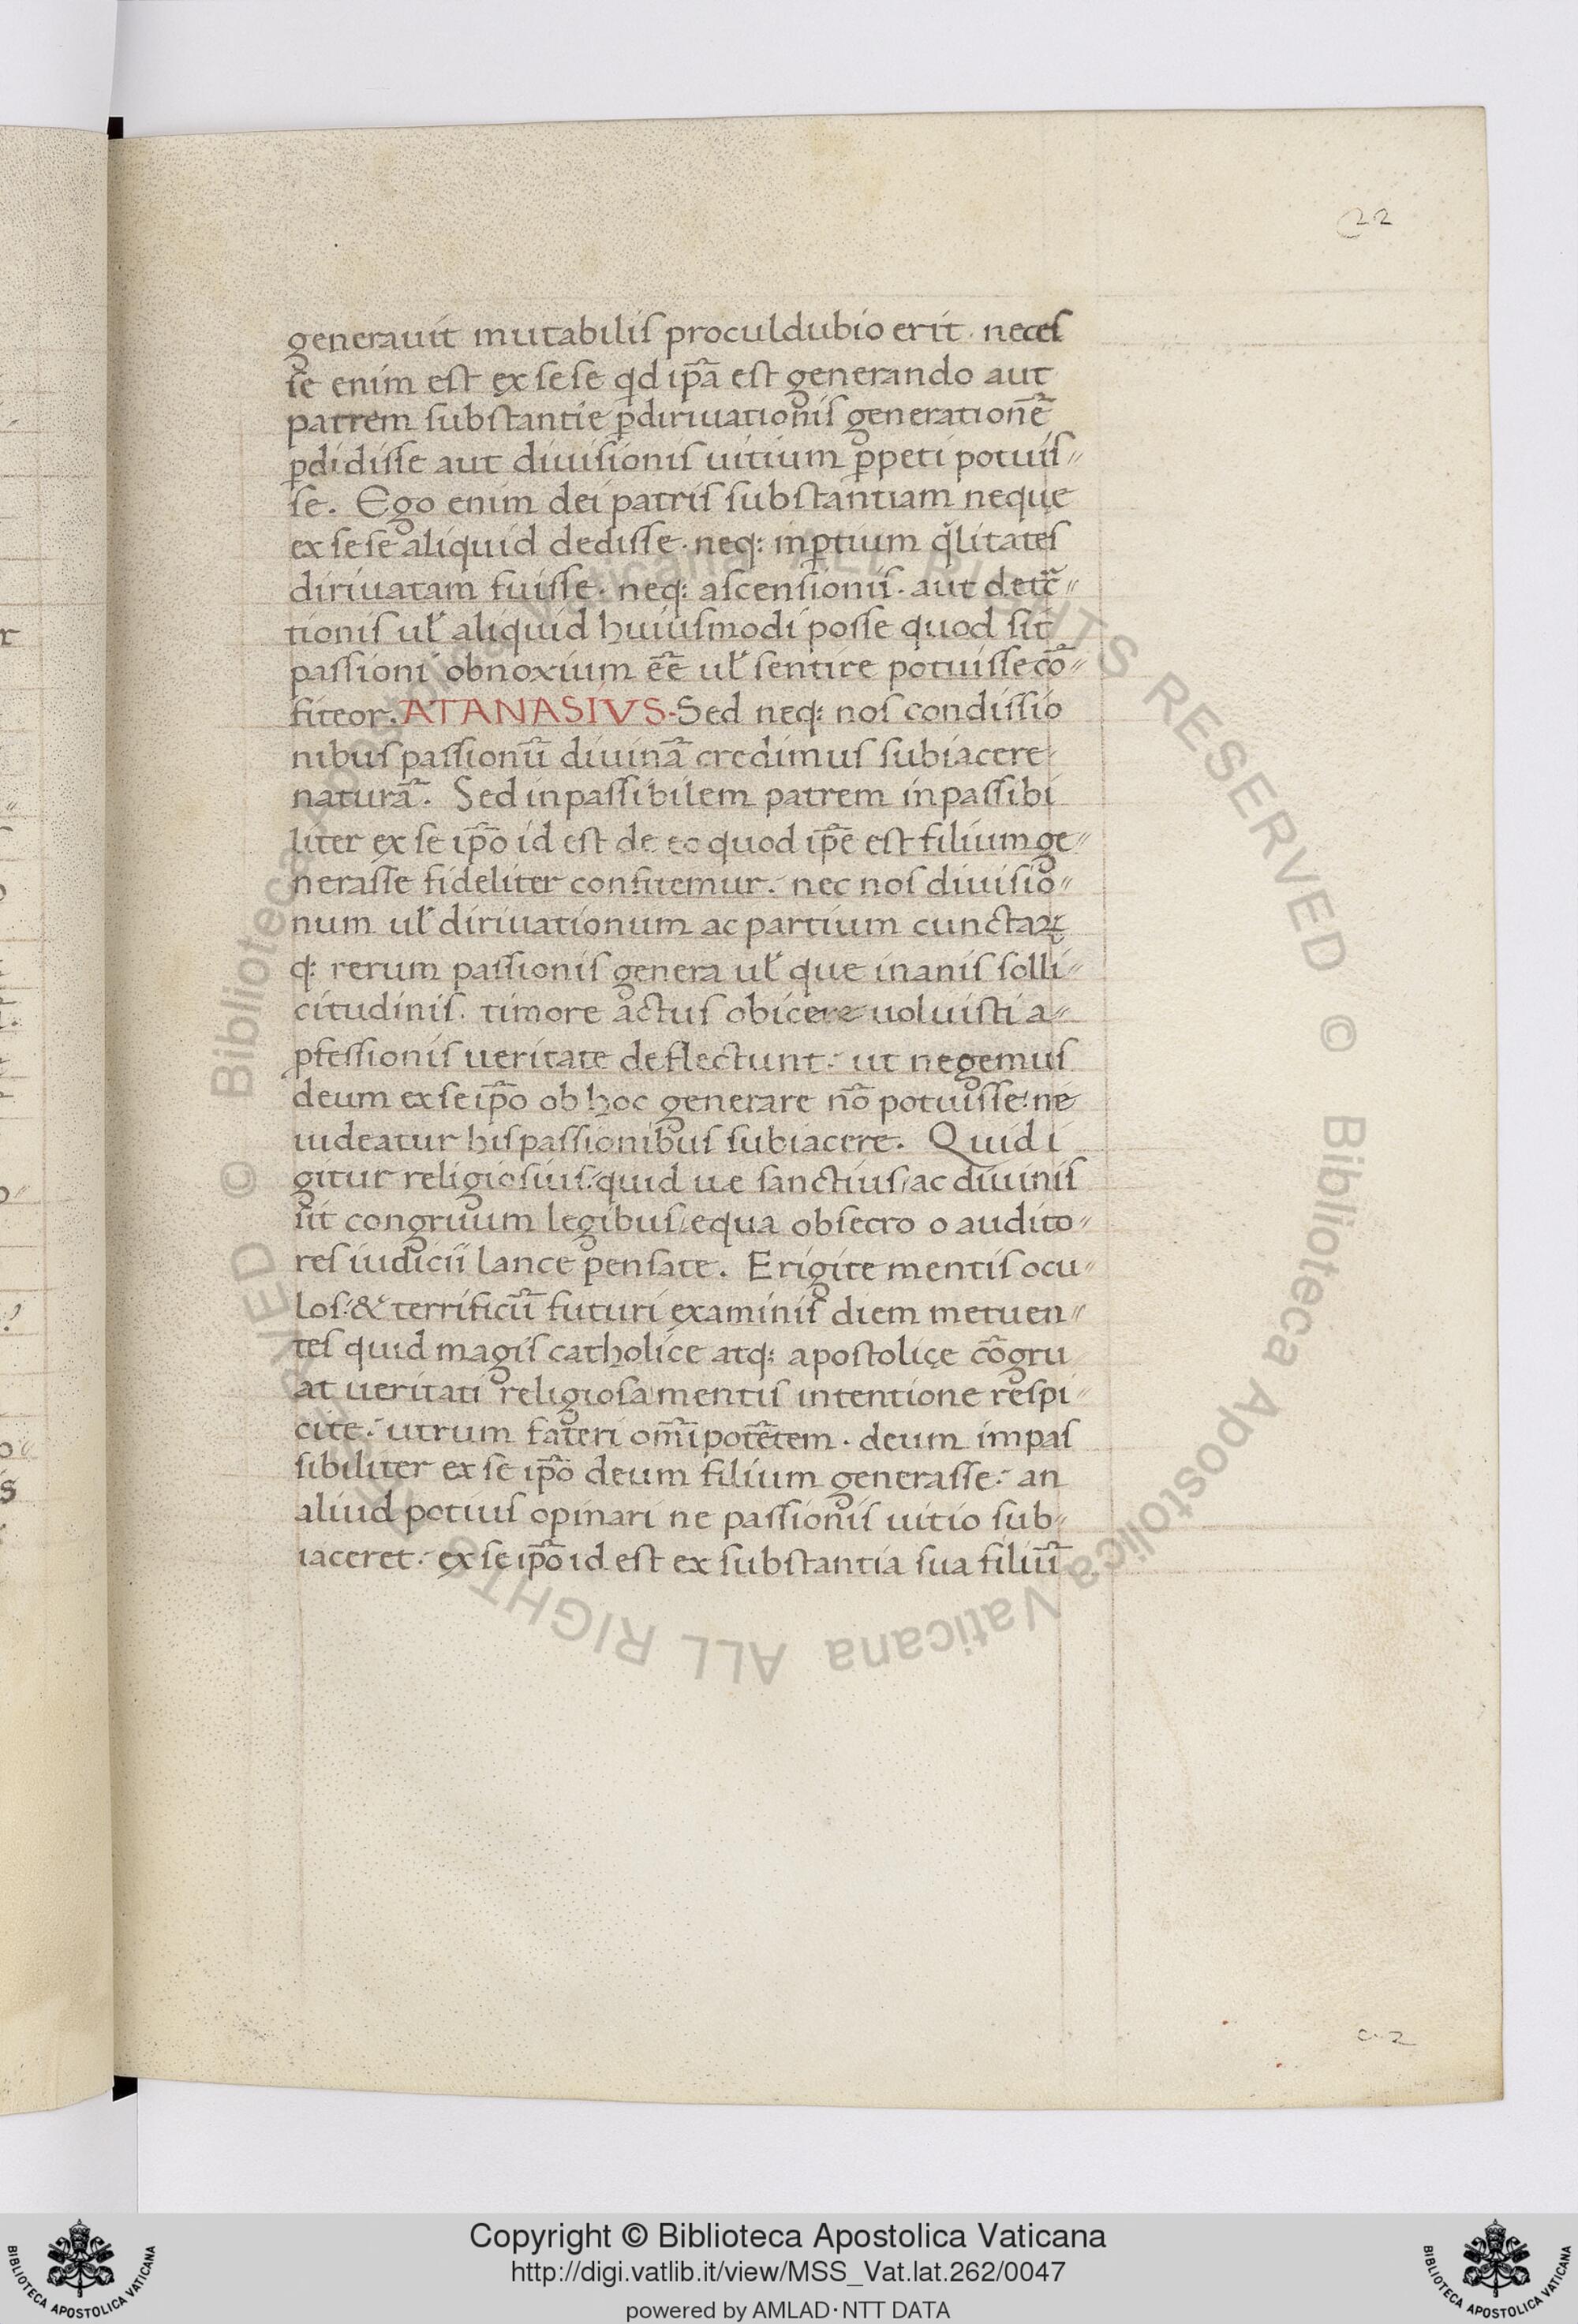 22
generauit mutabilis proculdubio erit · neces
se enim est ex sese qd ip̄a est generando aut
patrem substantie ꝑdiriuationis generationē
ꝑdidisse aut diuisionis uitium ꝑpeti potuis〃
se. Ego enim dei patris substantiam neque
ex sese aliquid dedisse · neq: inꝑtium qͣlitates
diriuatam fuisse · neq: ascensionis · aut detc̄〃
tionis ul̓ aliquid huiusmodi posse quod sit
passioni obnoxium eē ul̓ sentire potuisse cō〃
fiteor. ATANASIVS· Sed neq: nos condissio
nibus passionū diuinā credimus subiacere
naturā. Sed inpassibilem patrem inpassibi
liter ex se ip̄o id est de eo quod ip̄e est filium ge〃
nerasse fideliter confitemur. nec nos diuisio〃
num ul̓ diriuationum ac partium cunctaꝝ
q: rerum passionis genera ul̓ que inanis solli〃
citudinis. timore actus obicere uoluisti a〃
ꝓfessionis ueritate deflectunt. ut negemus
deum ex se ip̄o ob hoc generare nō potuisse: ne
uideatur his passionibus subiacere. Quid i
gitur religiosius: quid ue sanctius, ac diuinis
sit congruum legibus, equa obsecro o audito〃
res iudicii lance pensate. Erigite mentis ocu〃
los: & terrificū futuri examinis diem metuen〃
tes quid magis catholice atq: apostolicę cōgru
at ueritati religiosa mentis intentione respi〃
cite. utrum fateri om̄ipotētem · deum impas
sibiliter ex se ip̄o deum filium generasse. an
aliud potius opinari ne passionis uitio sub〃
iaceret. ex se ip̄o id est ex substantia sua filiū
c. 2
© Biblioteca Apostolica Vaticana ALL RIGHTS RESERVED © Biblioteca Apostolica Vaticana ALL RIGHTS RESERVED
BIBLIOTECA APOSTOLICA VATICANA
Copyright © Biblioteca Apostolica Vaticana
http://digi.vatlib.it/view/MSS_Vat.lat.262/0047
powered by AMLAD·NTT DATA
BIBLIOTECA APOSTOLICA VATICANA